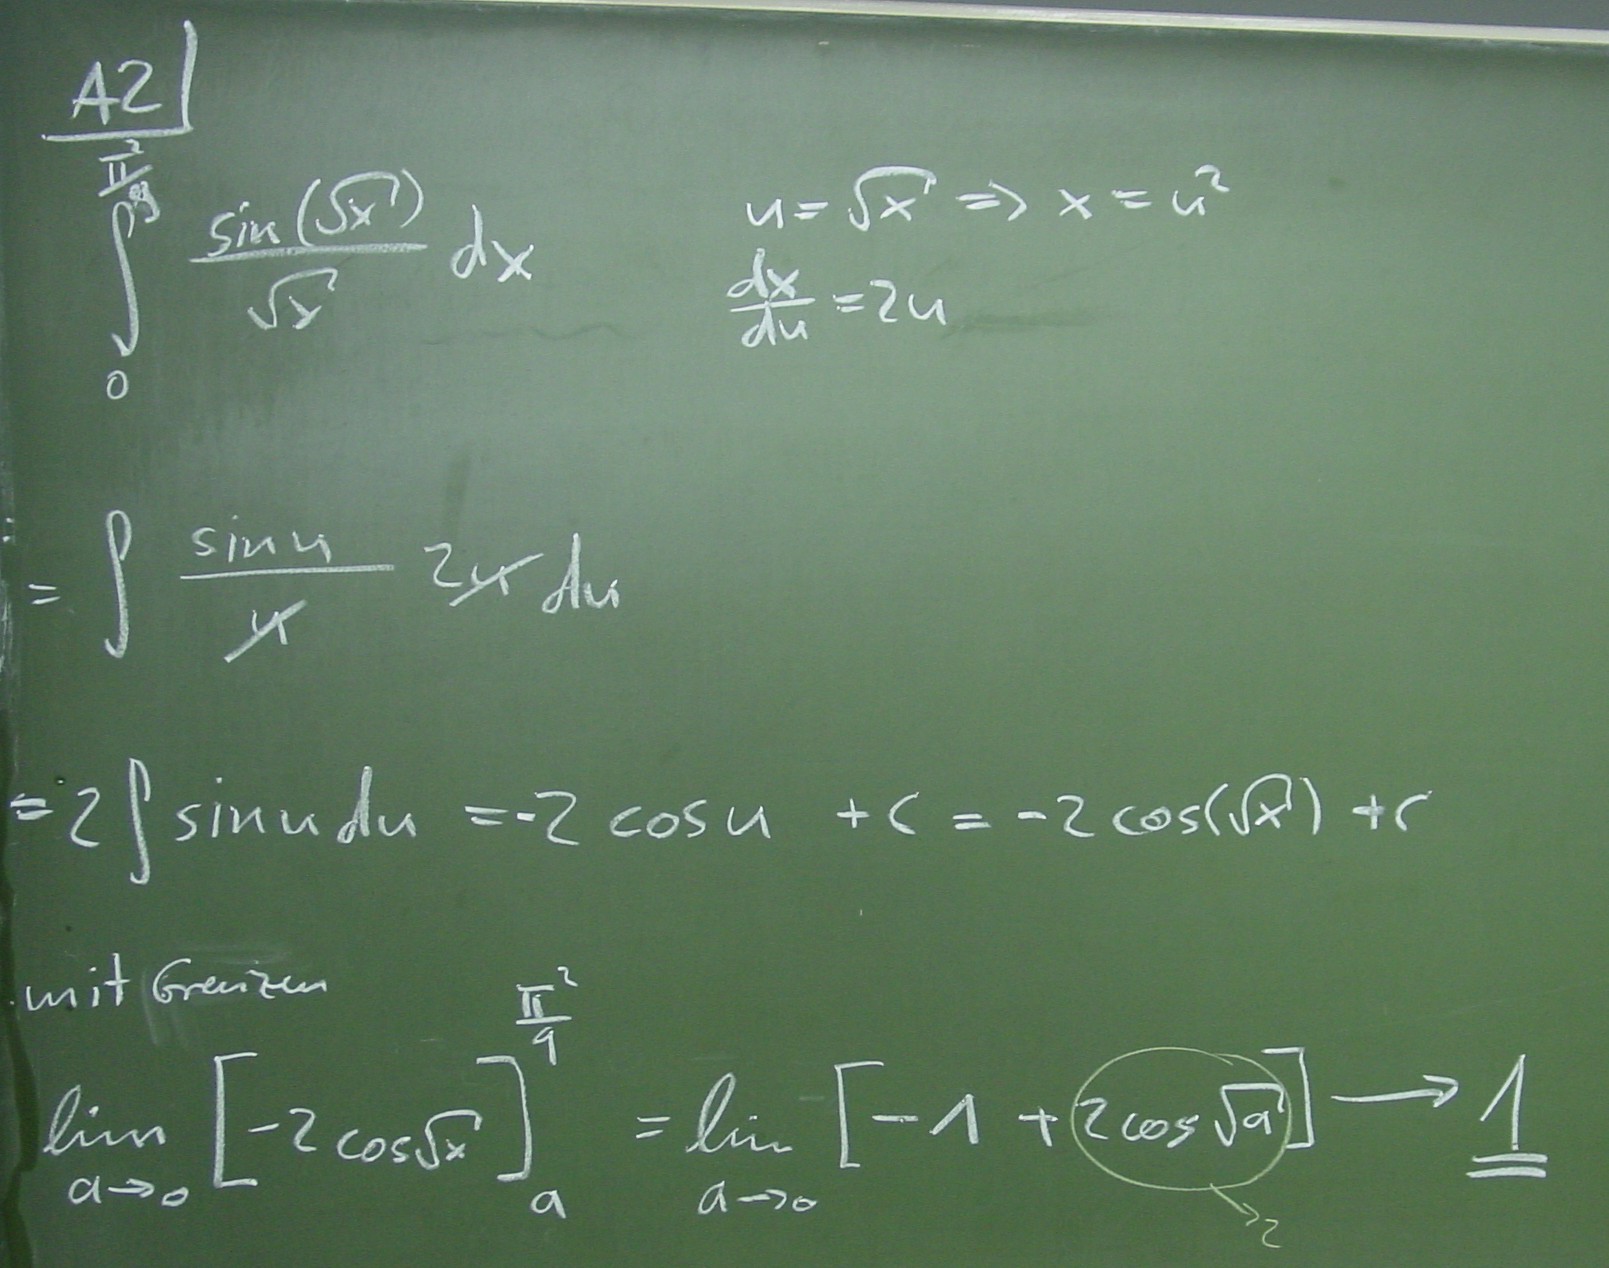 A2
∫₀^(π²/9) sin(√x)/√x dx    u = √x ⇒ x = u²
dx/du = 2u
= ∫ sin u / u 2u du
= 2 ∫ sin u du = -2 cos u + c = -2 cos(√x) + c
mit Grenzen
lim a→0 [-2 cos √x]_a^(π²/9) = lim a→0 [-1 + 2 cos √a] → 1
→ 2